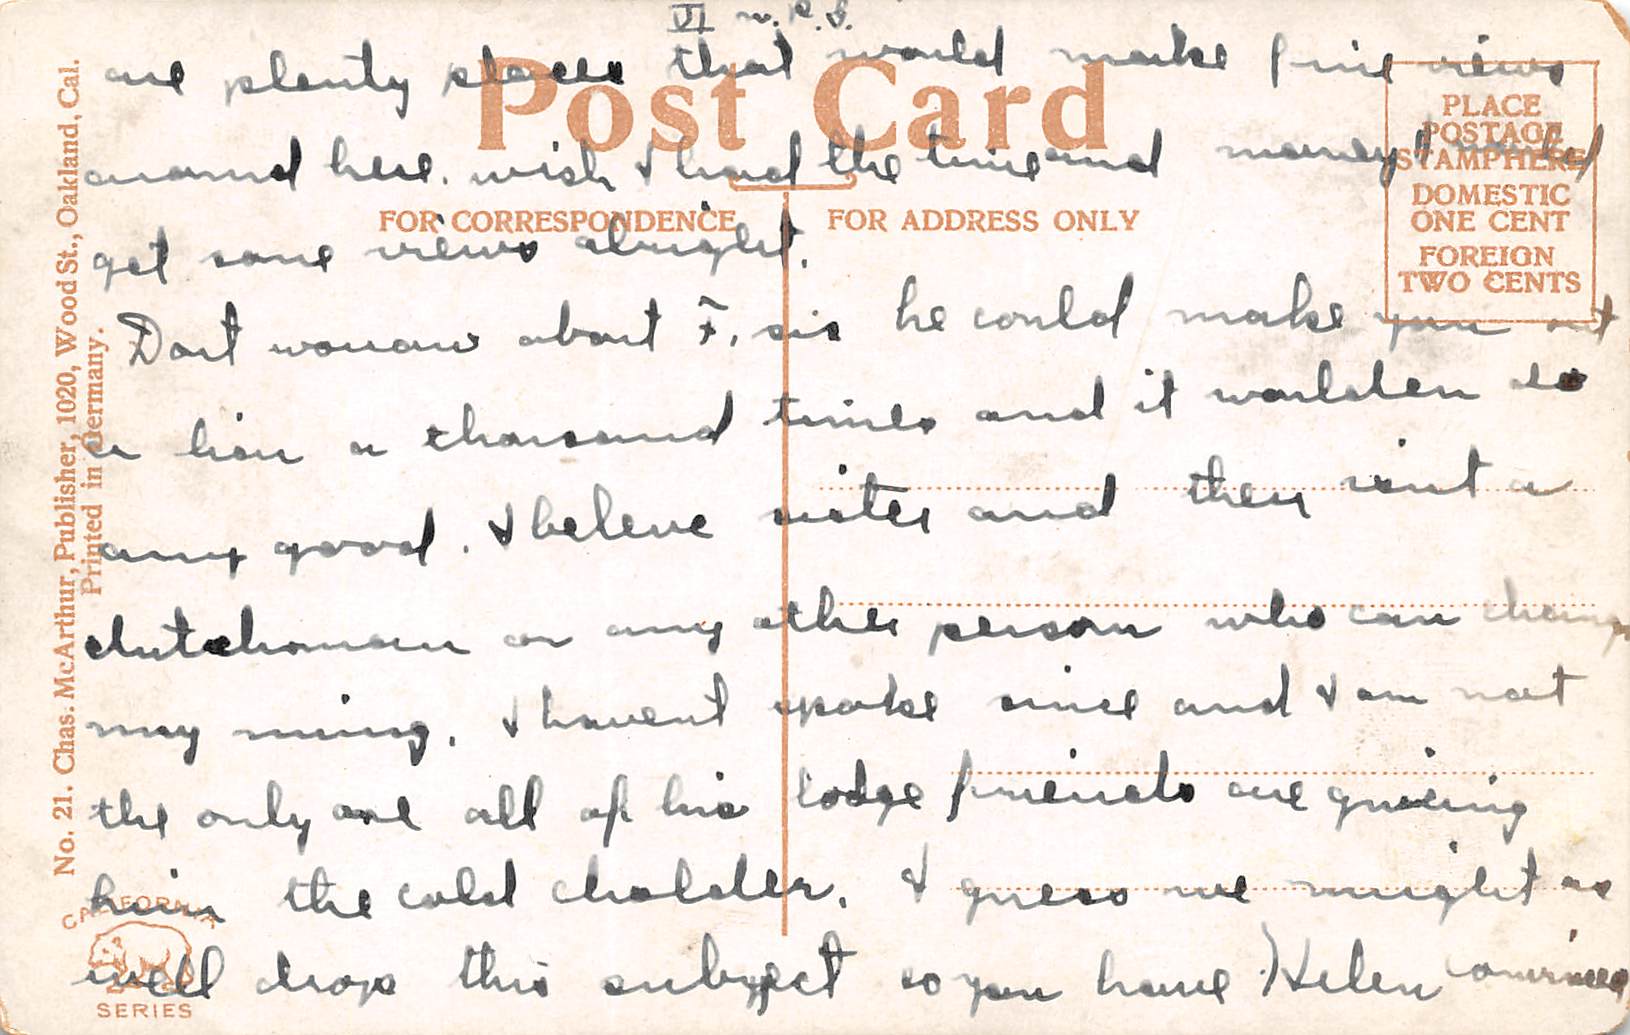 VI
are plenty places that would make fine views
Post Card
around here. wish I had the time and money I would
get some views alright.
FOR CORRESPONDENCE
FOR ADDRESS ONLY
PLACE
POSTAGE
STAMP HERE
DOMESTIC
ONE CENT
FOREIGN
TWO CENTS
Dont worrow about F. sis he could make you out
a liar a thousand times and it woulden do
any good. I beleve sister and ther isnt a
dutchman or any other person who can change
my ming. I havent spoke since and I am not
the only one all of his lodge friends are giveing
him the cold cholder. I guess we might as
well drop this subject so you have Helen convinced
No. 21. Chas. McArthur, Publisher, 1020, Wood St., Oakland, Cal.
Printed in Germany.
CALIFORNIA
SERIES